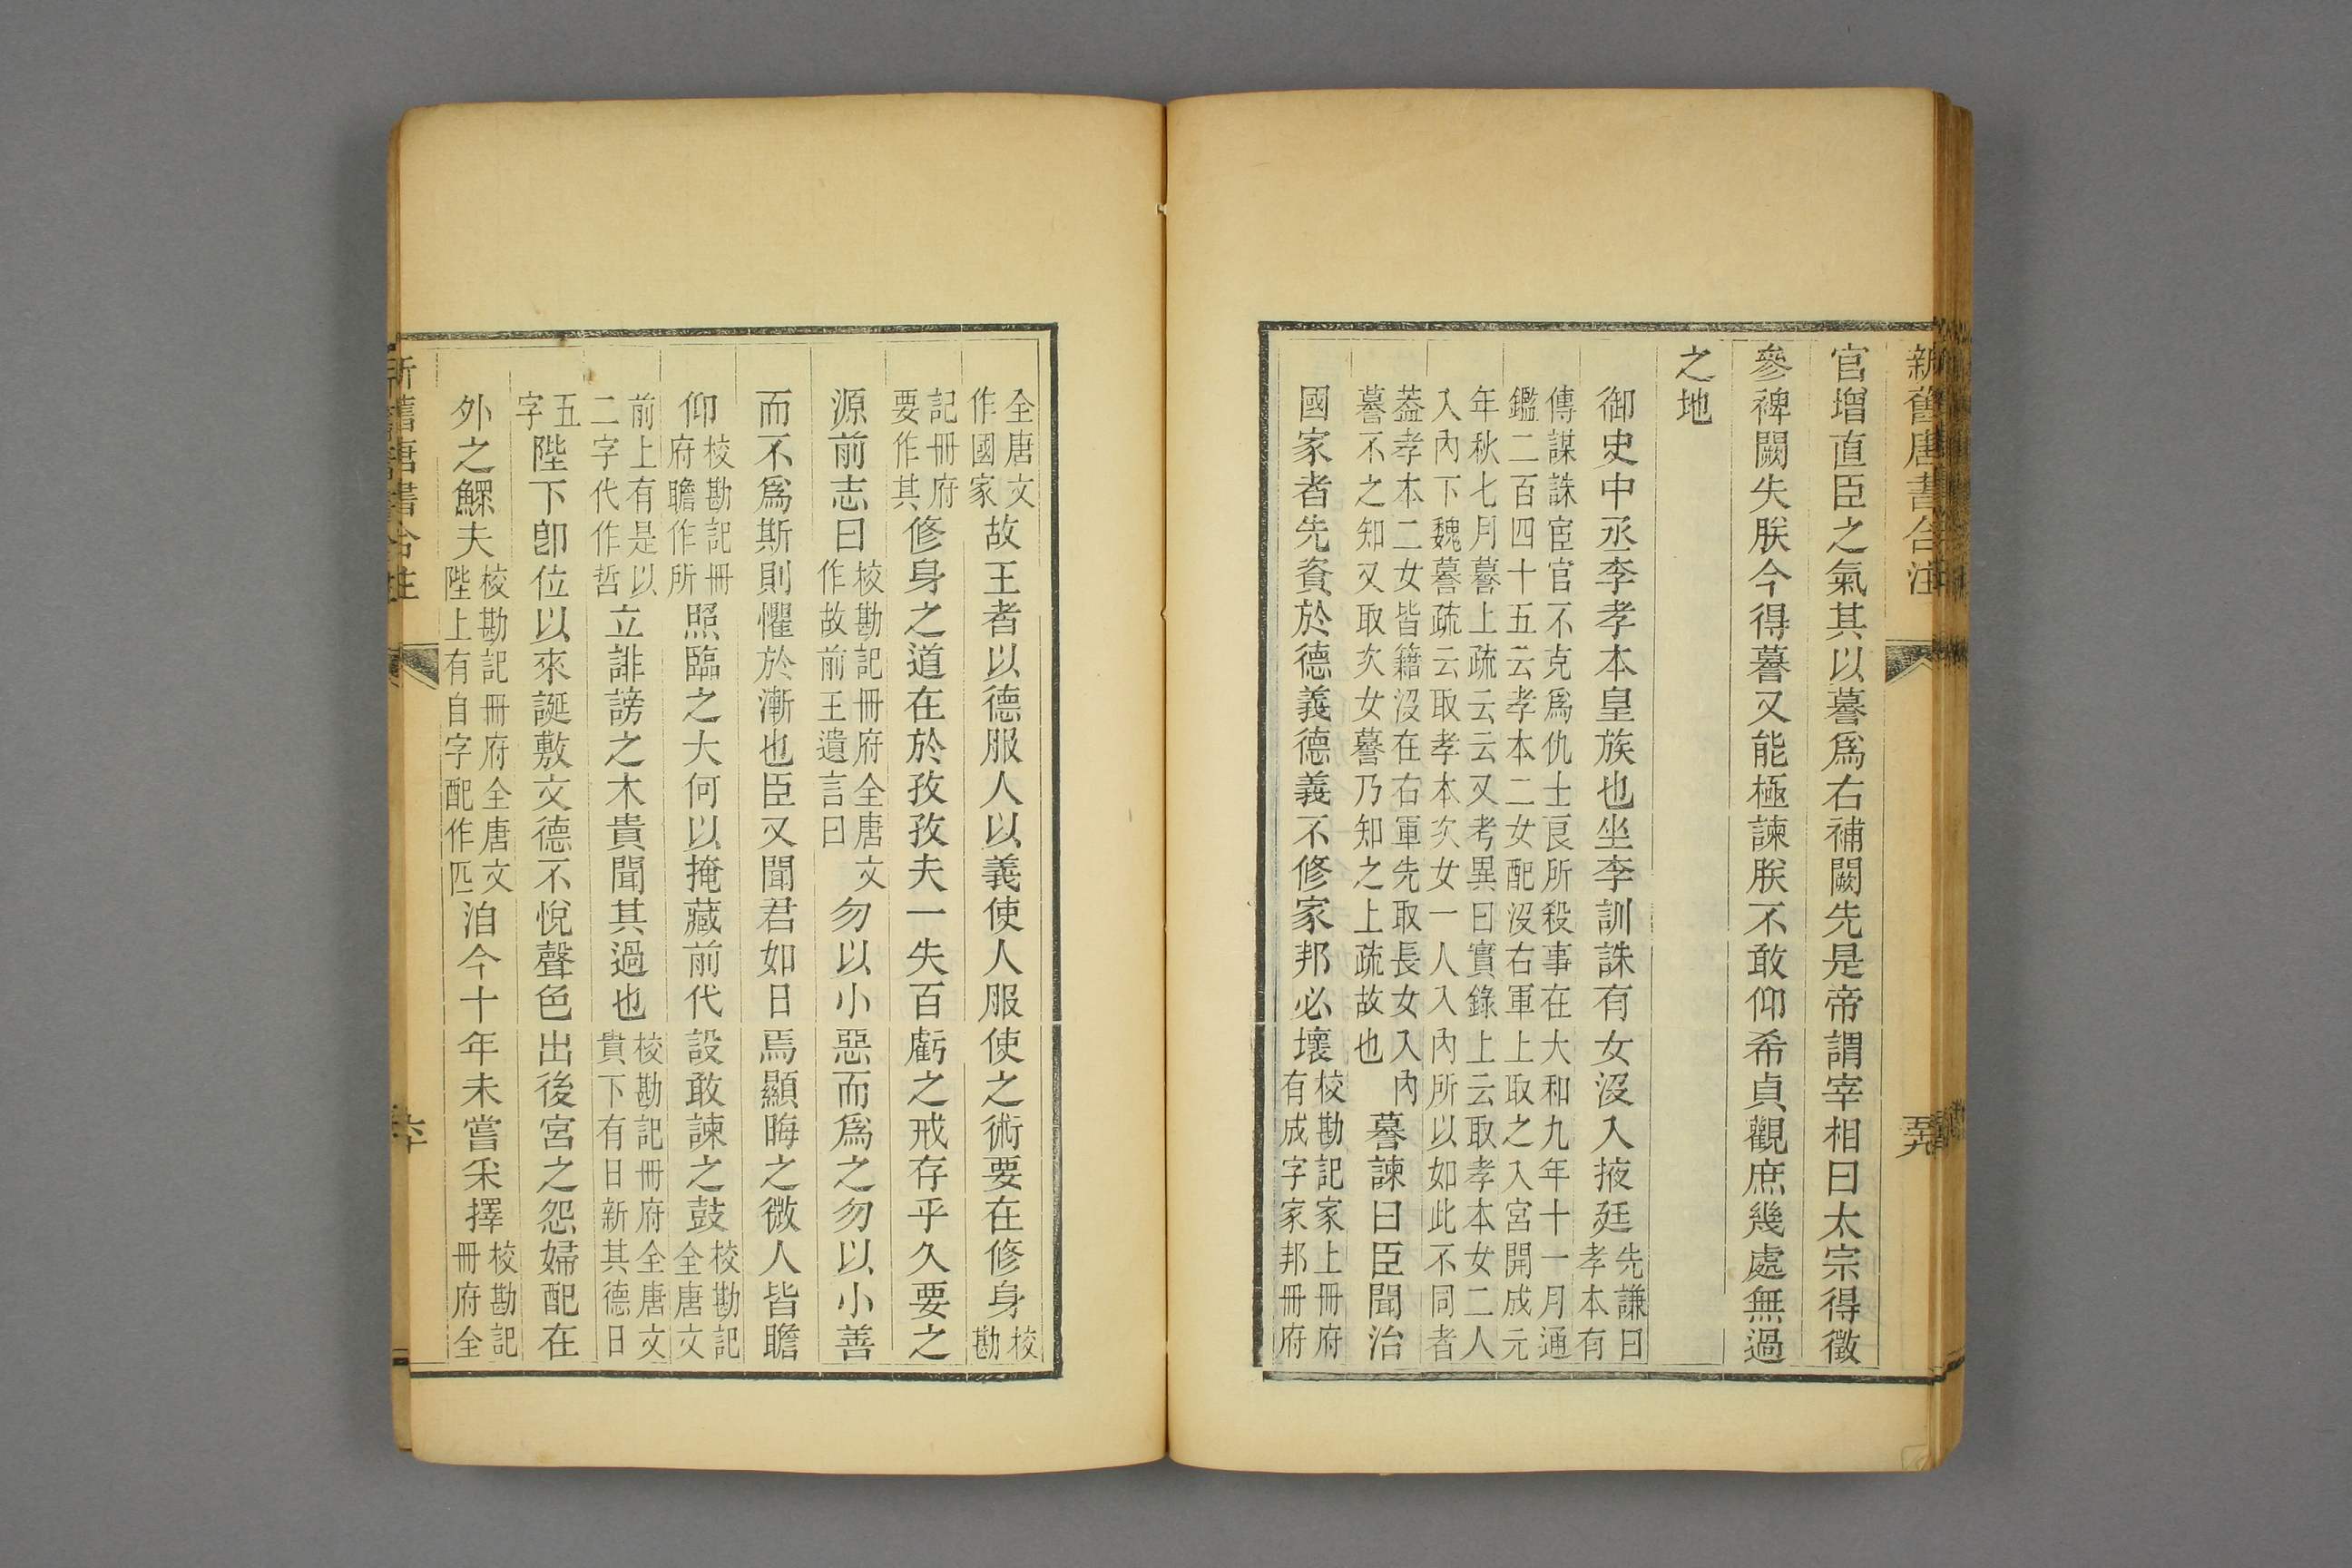 新舊唐書合注 五十九
官增直臣之氣其以謩爲右補闕先是帝謂宰相曰太宗得徵
參裨闕失朕今得謩又能極諫朕不敢仰希貞觀庶幾處無過
之地
御史中丞李孝本皇族也坐李訓誅有女沒入掖廷先謙曰孝本有
傳謀誅宦官不克爲仇士良所殺事在大和九年十一月通
鑑二百四十五云孝本二女配沒右軍上取之入宮開成元
年秋七月謩上疏云云又考異曰實錄上云取孝本女二人
入內下魏謩疏云取孝本次女一人入內所以如此不同者
葢孝本二女皆籍沒在右軍先取長女入內
謩不之知又取次女謩乃知之上疏故也謩諫曰臣聞治
國家者先資於德義德義不修家邦必壞校勘記家上冊府有成字家邦冊府
全唐文作國家故王者以德服人以義使人服使之術要在修身校勘
記冊府要作其修身之道在於孜孜夫一失百虧之戒存乎久要之
源前志曰校勘記冊府全唐文作故前王遺言曰勿以小惡而爲之勿以小善
而不爲斯則懼於漸也臣又聞君如日焉顯晦之微人皆瞻
仰校勘記冊府瞻作所照臨之大何以掩藏前代設敢諫之鼓校勘記全唐文
前上有是以二字代作哲立誹謗之木貴聞其過也校勘記冊府全唐文貴下有日新其德日
五字陛下卽位以來誕敷文德不悅聲色出後宮之怨婦配在
外之鰥夫校勘記冊府全唐文陛上有自字配作匹洎今十年未嘗采擇校勘記冊府全
新舊唐書合注 六十